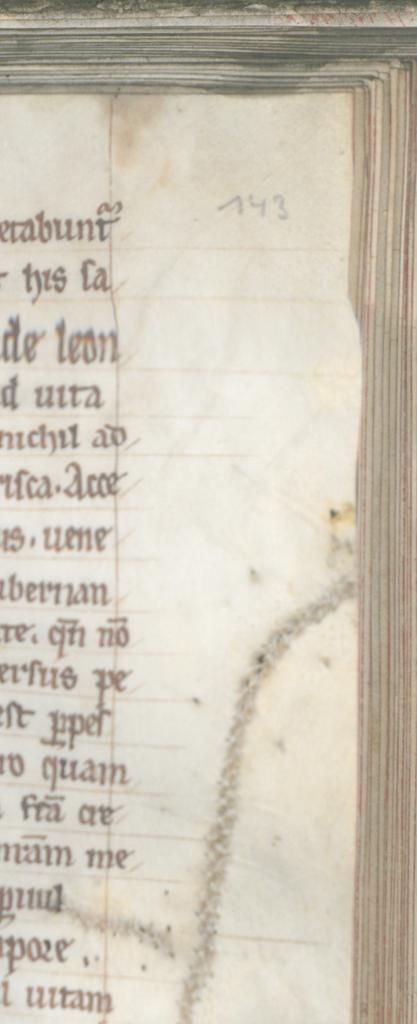 143
etabunt᷑
his sa
de leon
d uita
nichil ad
risca. Acce
us. uene
ubernan
re. qn̄ nō
ersus pe
est ꝑpes
uo quam
frā̄ cre
mām me
pore.
l uitam